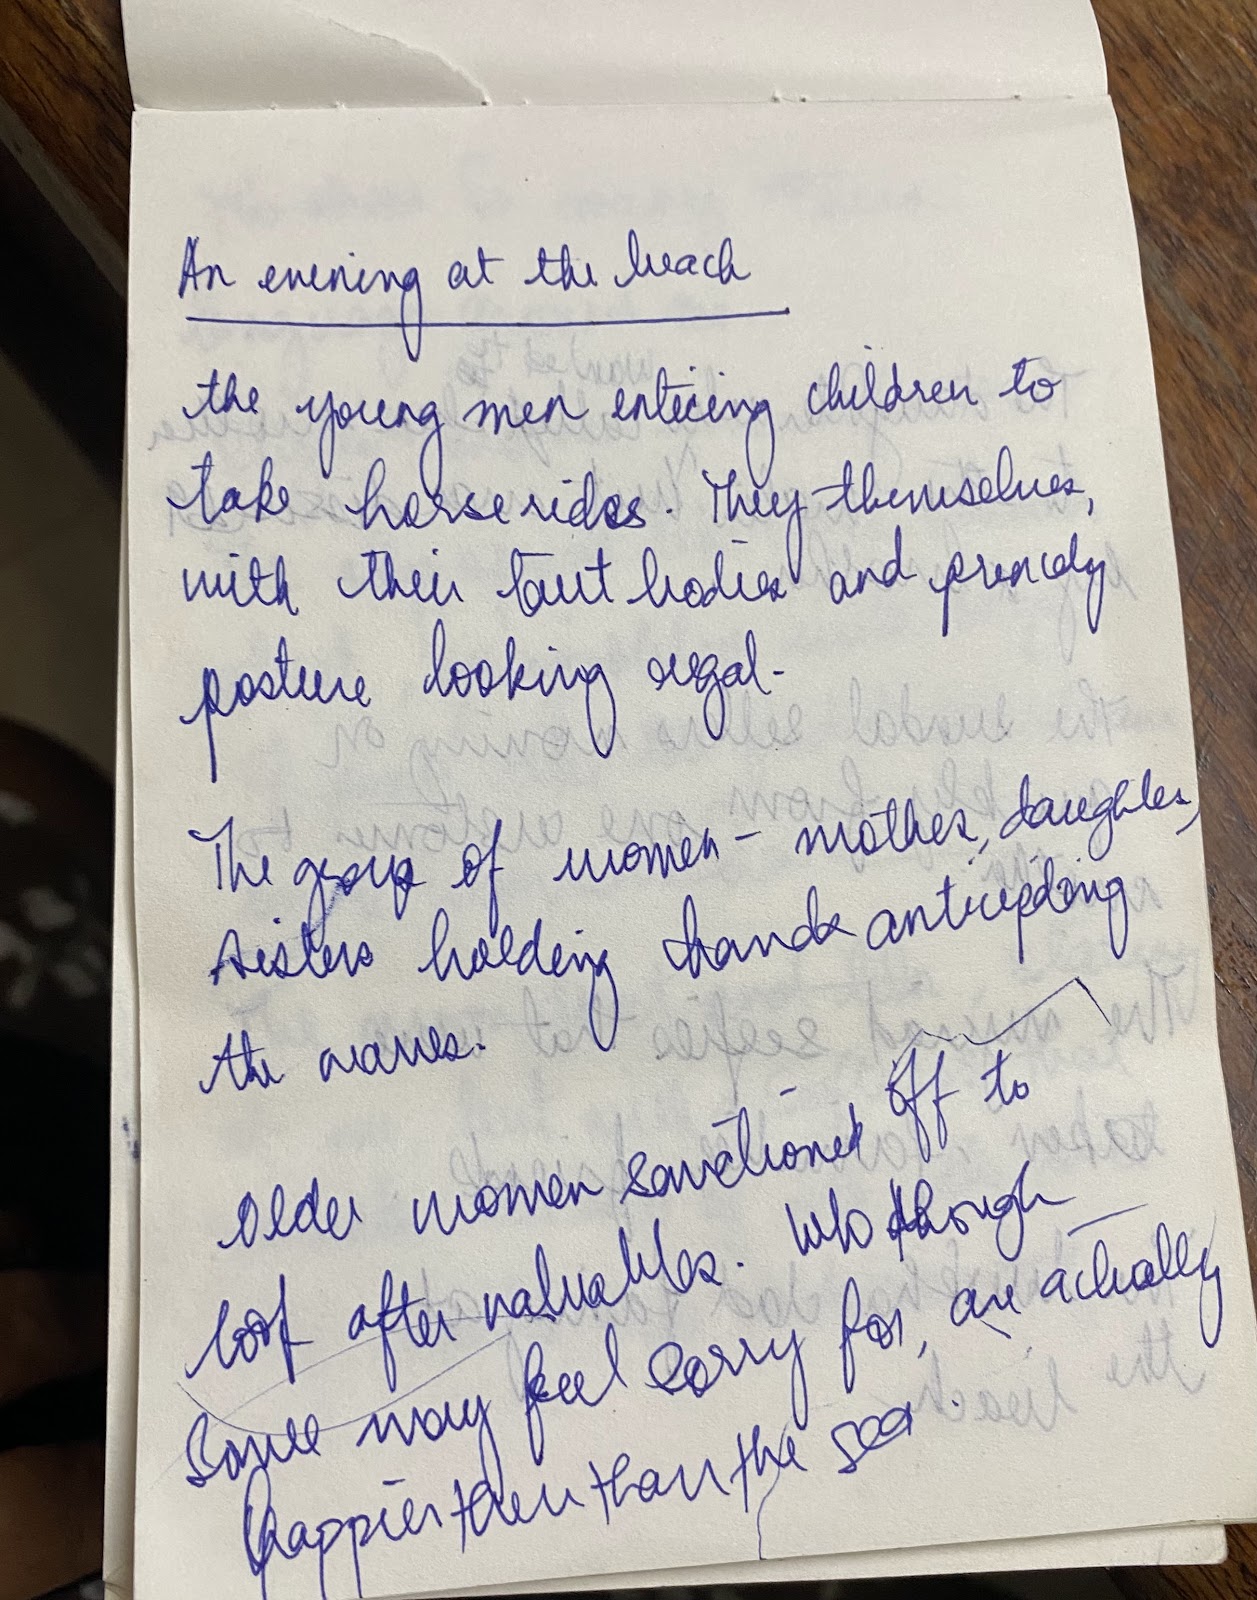 An evening at the beach
the young men enticing children to
take horse rides. They themselves,
with their taut bodies and
posture looking regal.
The group of women - mother, daughter,
sisters holding hands
the waves.
Older women sanctioned off to
look after valuables. Who though
some may feel sorry for, are actually
happier than the sea.